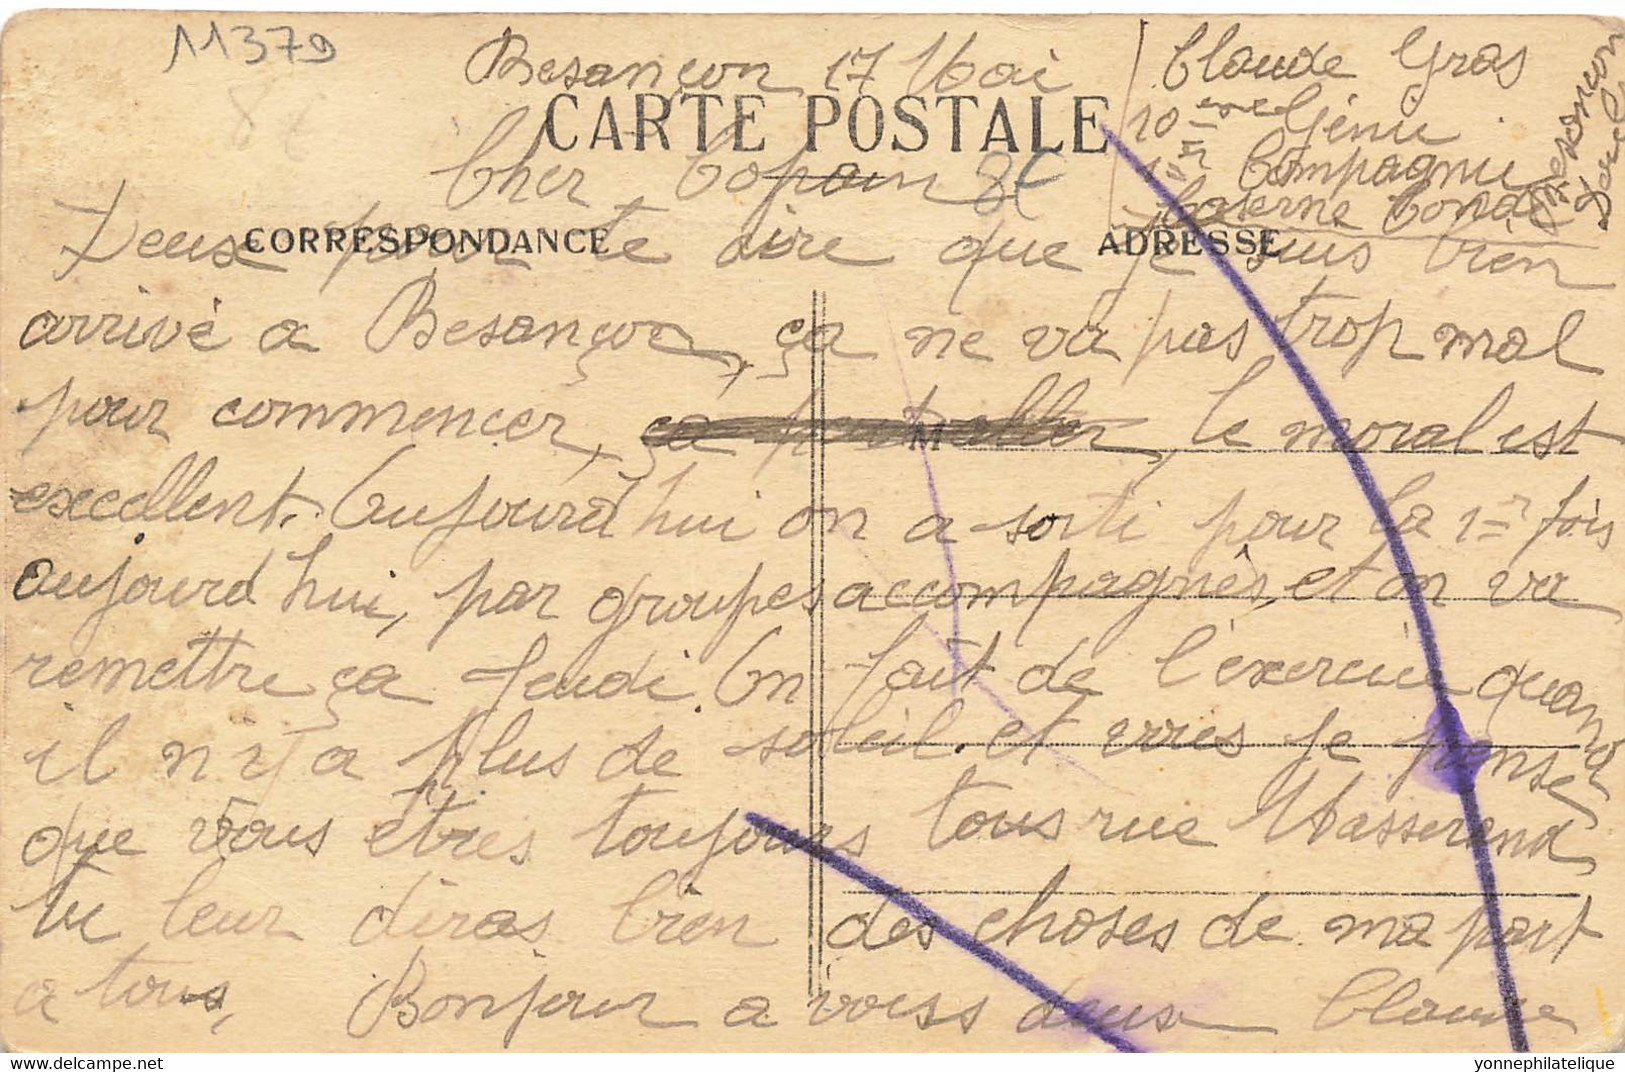 11379
8€
Besançon 17 Mai
Claude Gras
10 eme Génie
1ere Compagnie
Caserne Condé
Besançon
Doubs
CARTE POSTALE
Cher Copain 8€
CORRESPONDANCE
ADRESSE
Deux pour te dire que je suis bien
arrivé a Besançon, ça ne va pas trop mal
pour commencer, ça peut aller, le moral est
M
excellent. Aujourd'hui on a sorti pour la 1er fois
aujourd hui, par groupes accompagnés, et on va
remettre ça Jeudi. On fait de l'exercice quand
il n y a plus de soleil. et vous je pense
que vous êtres toujours tous rue Masserand
tu leur diras bien des choses de ma part
a tous, Bonjour a vous deux Claude
yonnephilatelique